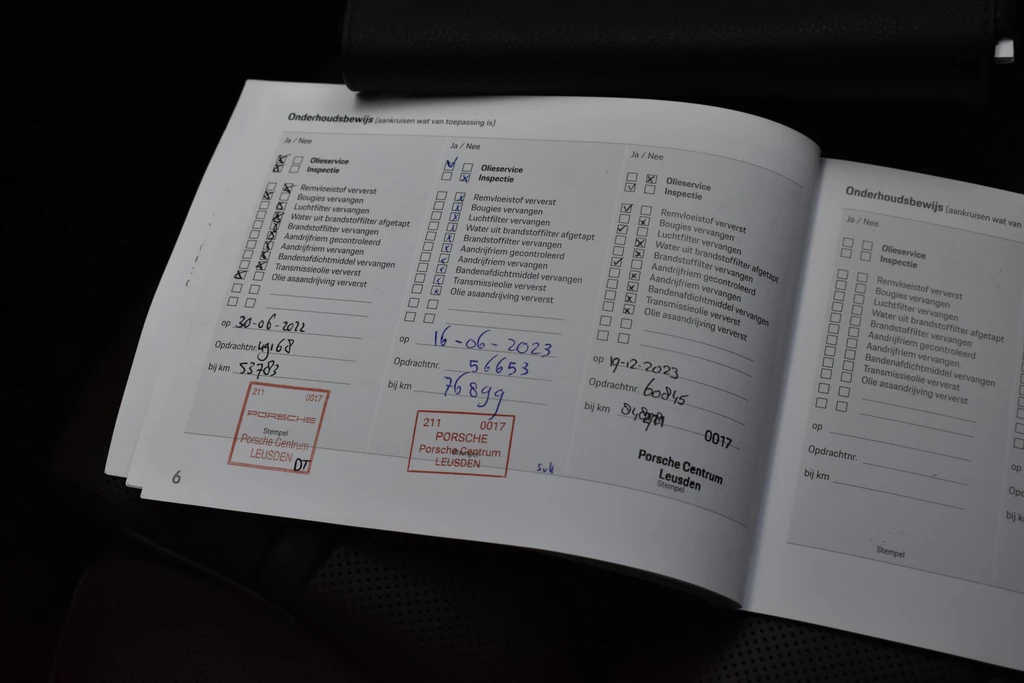 Onderhoudsbewijs (aankruisen wat van toepassing is)
Ja / Nee
Olieservice
Inspectie
Remvloeistof ververst
Bougies vervangen
Luchtfilter vervangen
Water uit brandstoffilter afgetapt
Brandstoffilter vervangen
Aandrijfriem gecontroleerd
Aandrijfriem vervangen
Bandenafdichtmiddel vervangen
Transmissieolie ververst
Olie asaandrijving ververst
op 30-06-2022
Opdrachtnr. 49168
bij km 53783
211 0017
PORSCHE
Stempel
Porsche Centrum
LEUSDEN
DT
6
Ja / Nee
Olieservice
Inspectie
Remvloeistof ververst
Bougies vervangen
Luchtfilter vervangen
Water uit brandstoffilter afgetapt
Brandstoffilter vervangen
Aandrijfriem gecontroleerd
Aandrijfriem vervangen
Bandenafdichtmiddel vervangen
Transmissieolie ververst
Olie asaandrijving ververst
op 16-06-2023
Opdrachtnr. 56653
bij km 76899
211 0017
PORSCHE
Porsche Centrum
LEUSDEN
Ja / Nee
Olieservice
Inspectie
Remvloeistof ververst
Bougies vervangen
Luchtfilter vervangen
Water uit brandstoffilter afgetapt
Brandstoffilter vervangen
Aandrijfriem gecontroleerd
Aandrijfriem vervangen
Bandenafdichtmiddel vervangen
Transmissieolie ververst
Olie asaandrijving ververst
op 19-12-2023
Opdrachtnr. 60845
bij km
0017
Porsche Centrum
Leusden
Stempel
Onderhoudsbewijs (aankruisen wat van
Ja / Nee
Olieservice
Inspectie
Remvloeistof ververst
Bougies vervangen
Luchtfilter vervangen
Water uit brandstoffilter afgetapt
Brandstoffilter vervangen
Aandrijfriem gecontroleerd
Aandrijfriem vervangen
Bandenafdichtmiddel vervangen
Transmissieolie ververst
Olie asaandrijving ververst
op
Opdrachtnr.
bij km
Stempel
op